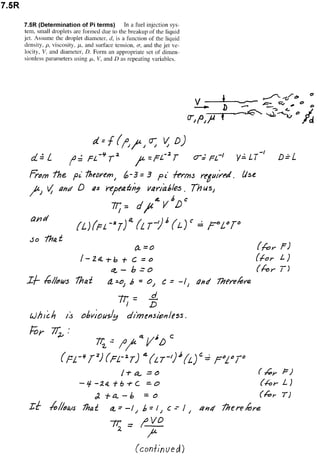 7.5R
7.5R (Determination of Pi terms) In a fuel injection sys-
tem, small droplets are formed due to the breakup of the liquid
jet. Assume the droplet diameter, d, is a function of the liquid
density, ρ, viscosity, μ, and surface tension, σ, and the jet ve-
locity, V, and diameter, D. Form an appropriate set of dimen-
sionless parameters using μ, V, and D as repeating variables.
V
D
σ, ρ, μ
d
d = f (ρ, μ, σ, V, D)
d ≐ L ρ ≐ FL⁻⁴T² μ ≐ FL⁻²T σ ≐ FL⁻¹ V ≐ LT⁻¹ D ≐ L
From the pi theorem, 6-3 = 3 pi terms required. Use
μ, V, and D as repeating variables. Thus,
π₁ = d μᵃ Vᵇ Dᶜ
and
(L)(FL⁻²T)ᵃ (LT⁻¹)ᵇ (L)ᶜ ≐ F⁰L⁰T⁰
so that
a = 0 (for F)
1 - 2a + b + c = 0 (for L)
a - b = 0 (for T)
It follows that a = 0, b = 0, c = -1, and therefore
π₁ = d/D
which is obviously dimensionless.
For π₂:
π₂ = ρ μᵃ Vᵇ Dᶜ
(FL⁻⁴T²)(FL⁻²T)ᵃ (LT⁻¹)ᵇ (L)ᶜ ≐ F⁰L⁰T⁰
1 + a = 0 (for F)
-4 - 2a + b + c = 0 (for L)
2 + a - b = 0 (for T)
It follows that a = -1, b = 1, c = 1, and therefore
π₂ = ρVD/μ
(continued)